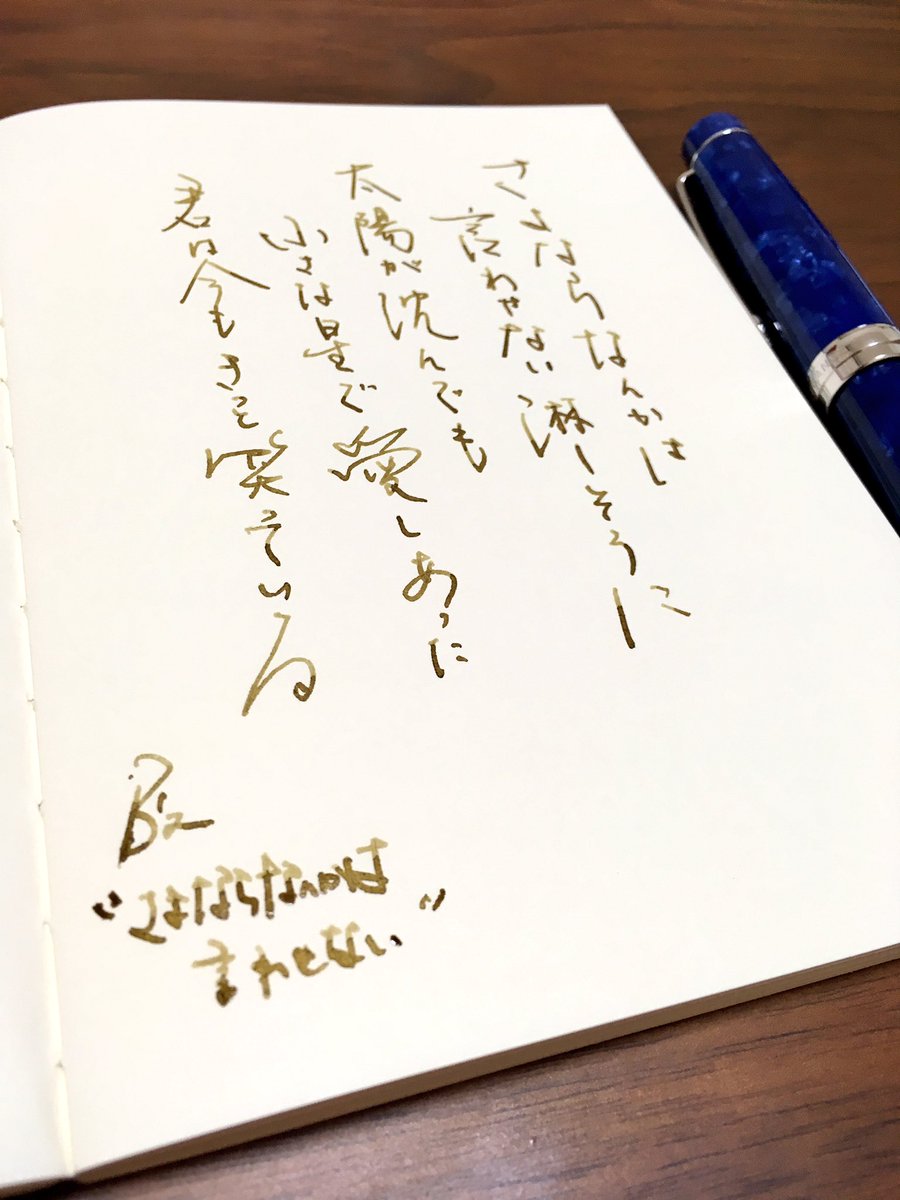 さよならなんかは
言わせない 淋しそうに
太陽が沈んでも
小さな星で愛しあった
君は今もきっと笑っている
B'z
“さよならなんかは
言わせない”